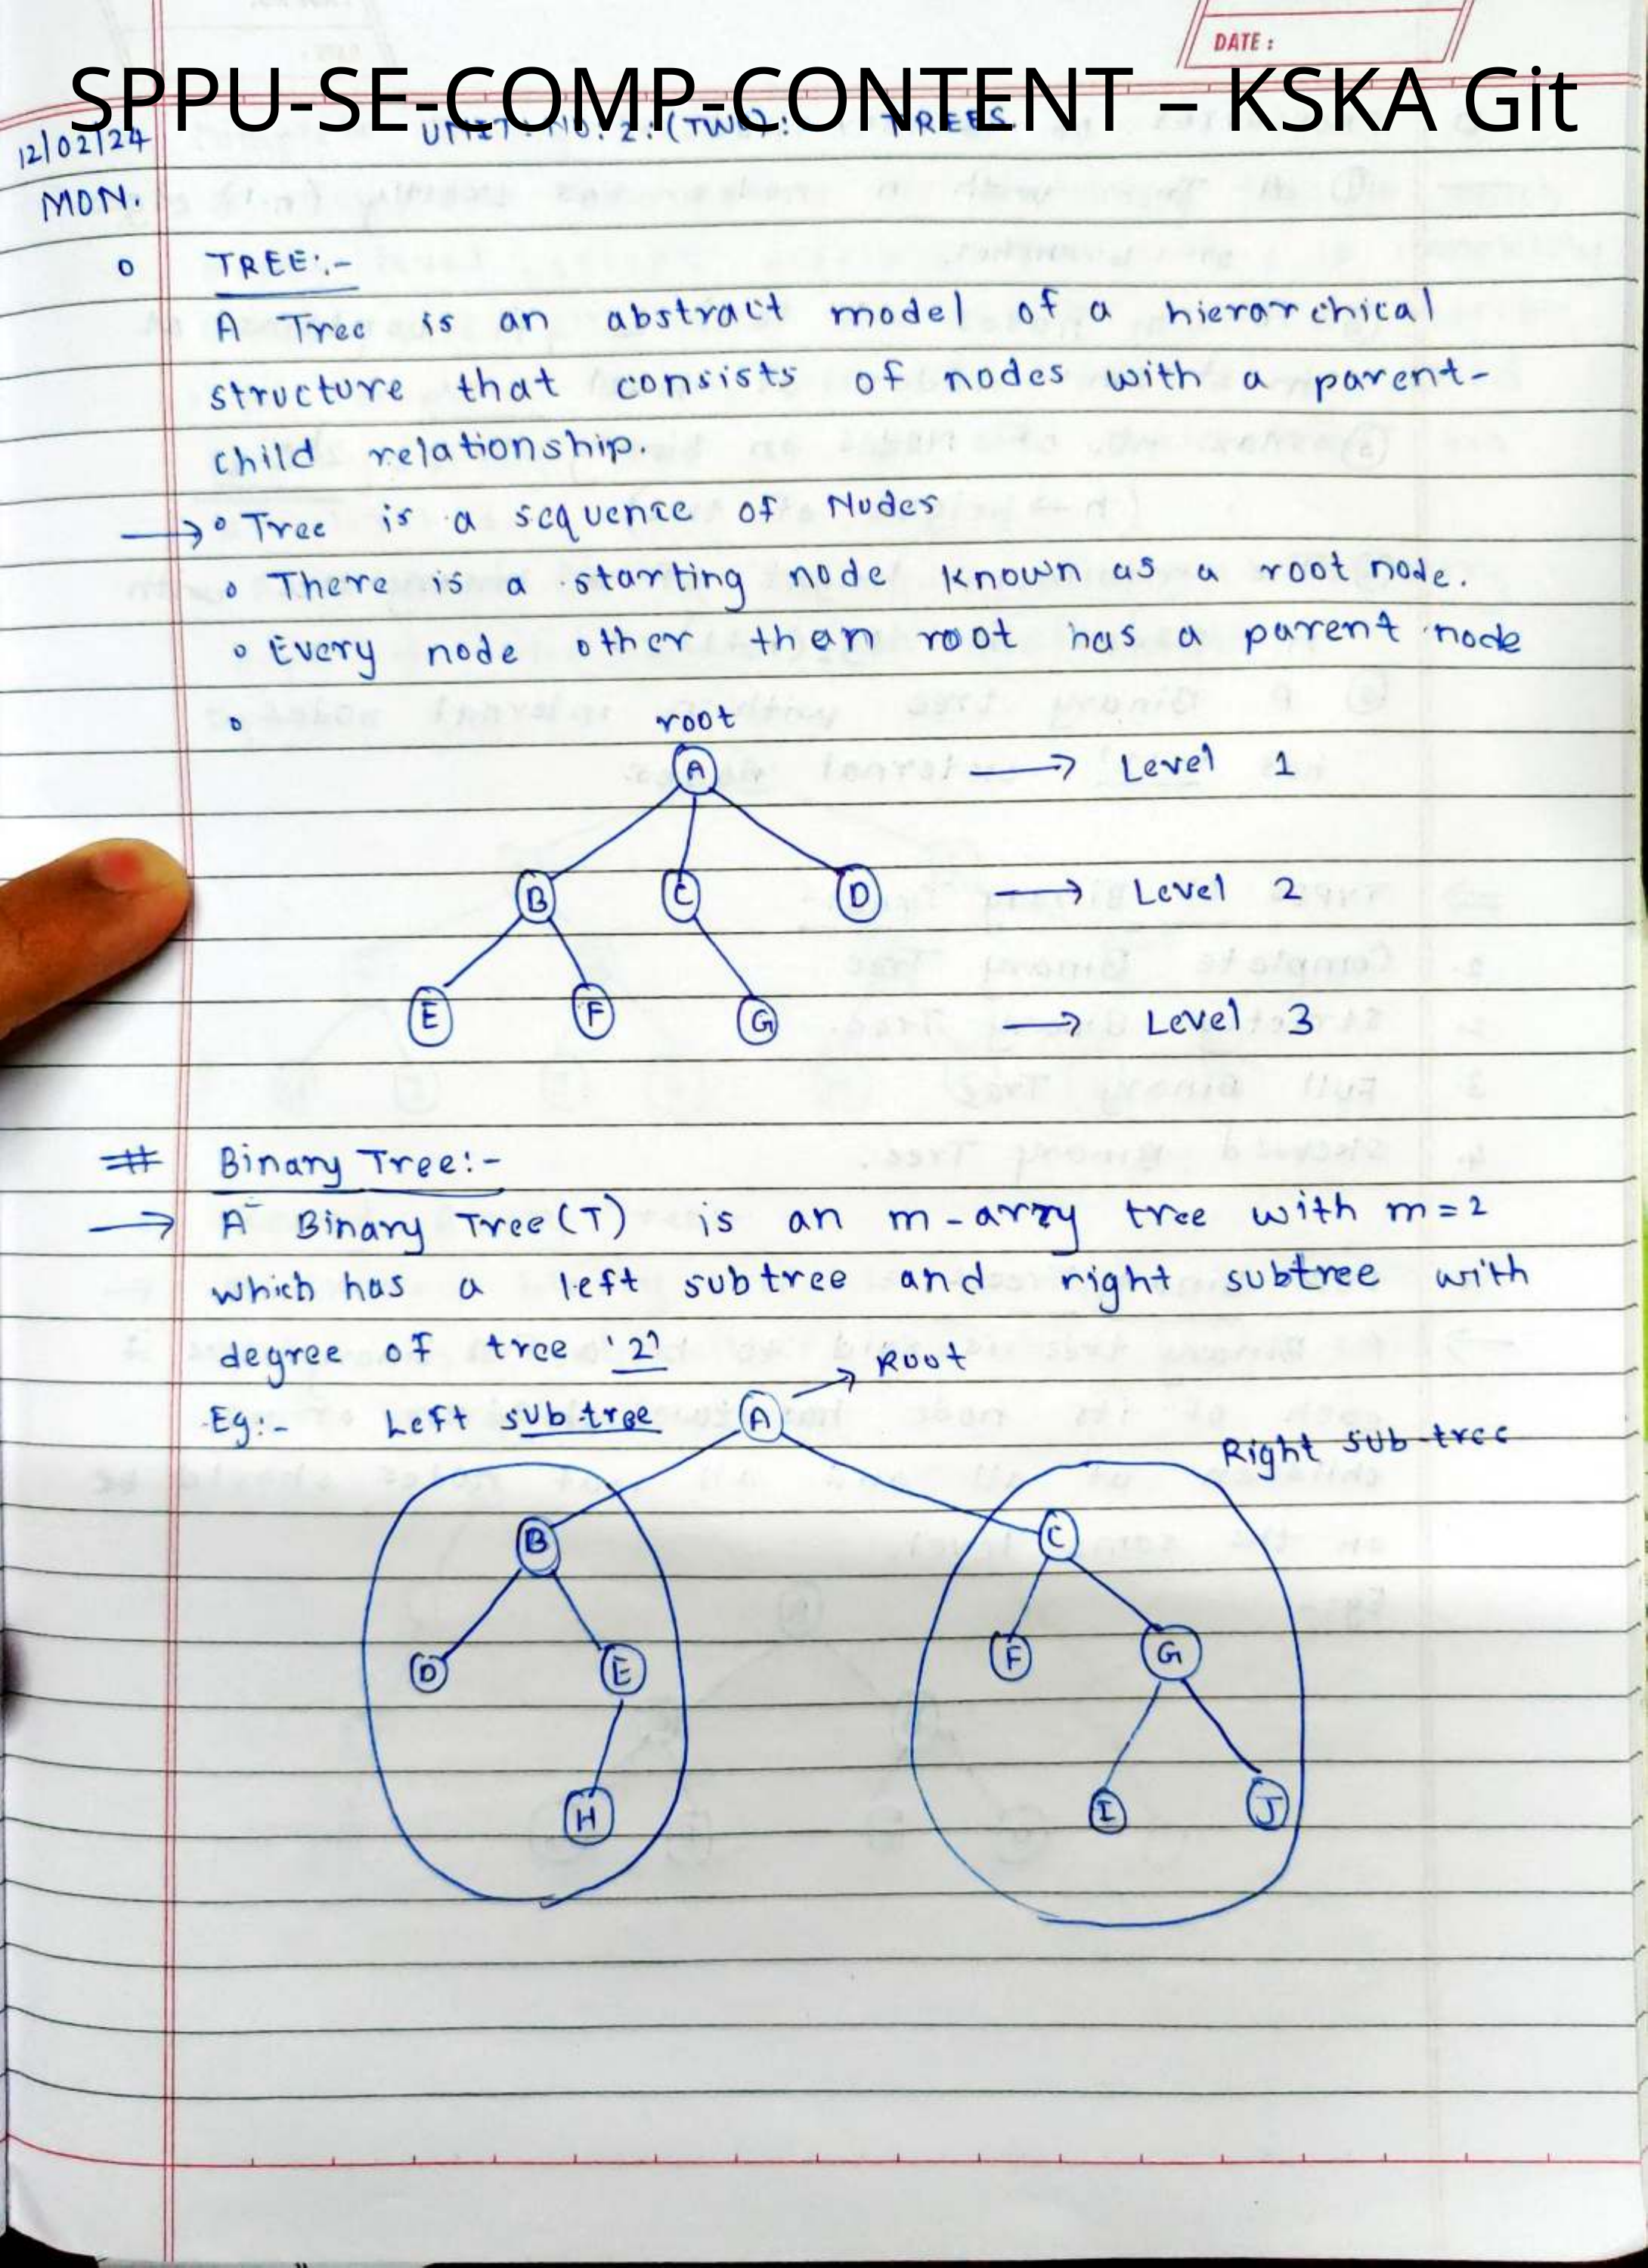 DATE :
SPPU-SE-COMP-CONTENT – KSKA Git
12/02/24 UNIT: NO: 2: (TWO): TREES.
MON.
TREE:-
A Tree is an abstract model of a hierarchical
structure that consists of nodes with a parent-
child relationship.
→ Tree is a sequence of Nodes
There is a starting node known as a root node.
Every node other than root has a parent node
root
A → Level 1
B C D → Level 2
E F G → Level 3
# Binary Tree:-
→ A Binary Tree(T) is an m-arry tree with m=2
which has a left subtree and right subtree with
degree of tree '2'
→ Root
Eg:- Left subtree A
Right sub-tree
B C
D E F G
H I J